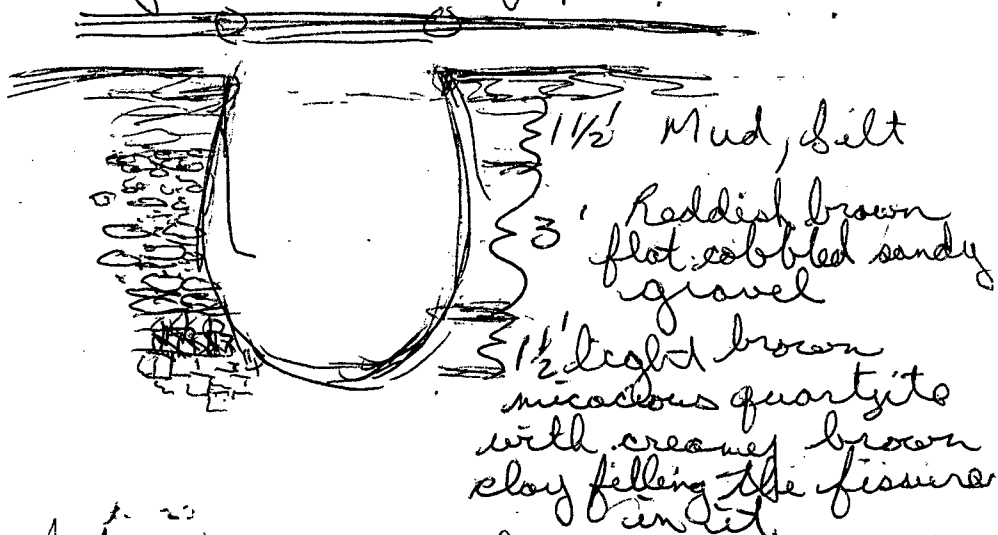 1 1/2' Mud, silt
3' Reddish brown
flat cobbled sandy
gravel
1 1/2' light brown
micacious quartzite
with creamey brown
clay filling the fissures
in it.